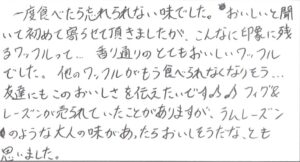 一度食べたら忘れられない味でした。おいしいと聞
いて初めて買らせて頂きましたが、こんなに印象に残
るワッフルって… 香り通りのとてもおいしいワッフル
でした。他のワッフルがもう食べられなくなりそう…
友達にもこのおいしさを伝えたいです♪♪ フィグ&
レーズンが売られていたことがありますが、ラムレーズン
のような大人の味があったらおいしそうだな、とも
思いました。